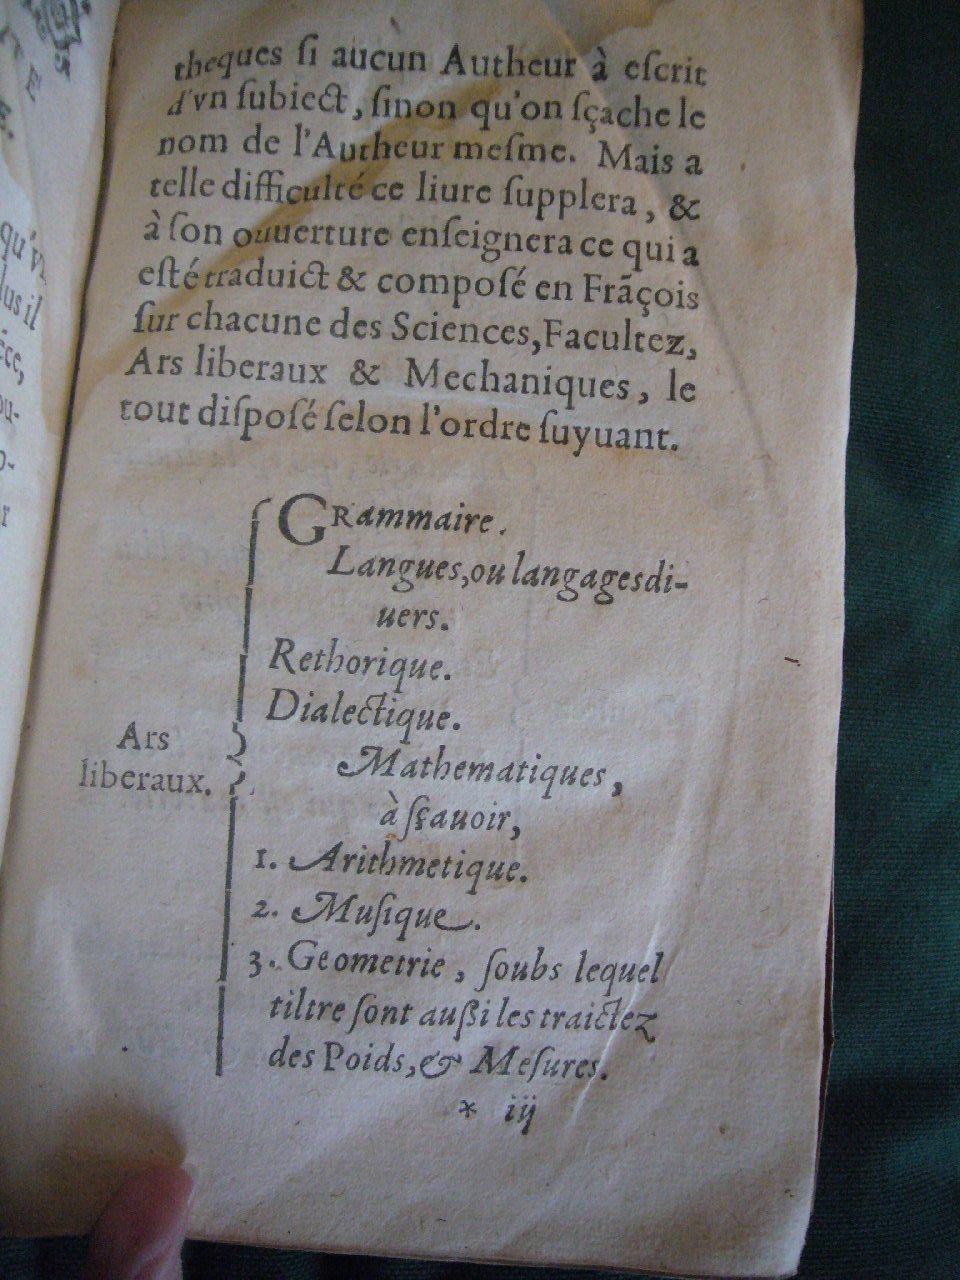 theques ſi aucun Autheur à eſcrit
d'vn ſubiect, ſinon qu'on ſçache le
nom de l'Autheur meſme. Mais a
telle difficulté ce liure ſupplera, &
à ſon ouuerture enſeignera ce qui a
eſté traduict & compoſé en Frãçois
ſur chacune des Sciences, Facultez,
Ars liberaux & Mechaniques, le
tout diſpoſé ſelon l'ordre ſuyuant.
GRammaire.
Langues, ou langages di-
uers.
Rethorique.
Dialectique.
Ars
liberaux.
Mathematiques,
à ſçauoir,
1. Arithmetique.
2. Muſique.
3. Geometrie, ſoubs lequel
tiltre ſont außi les traictez
des Poids, & Meſures.
* iij